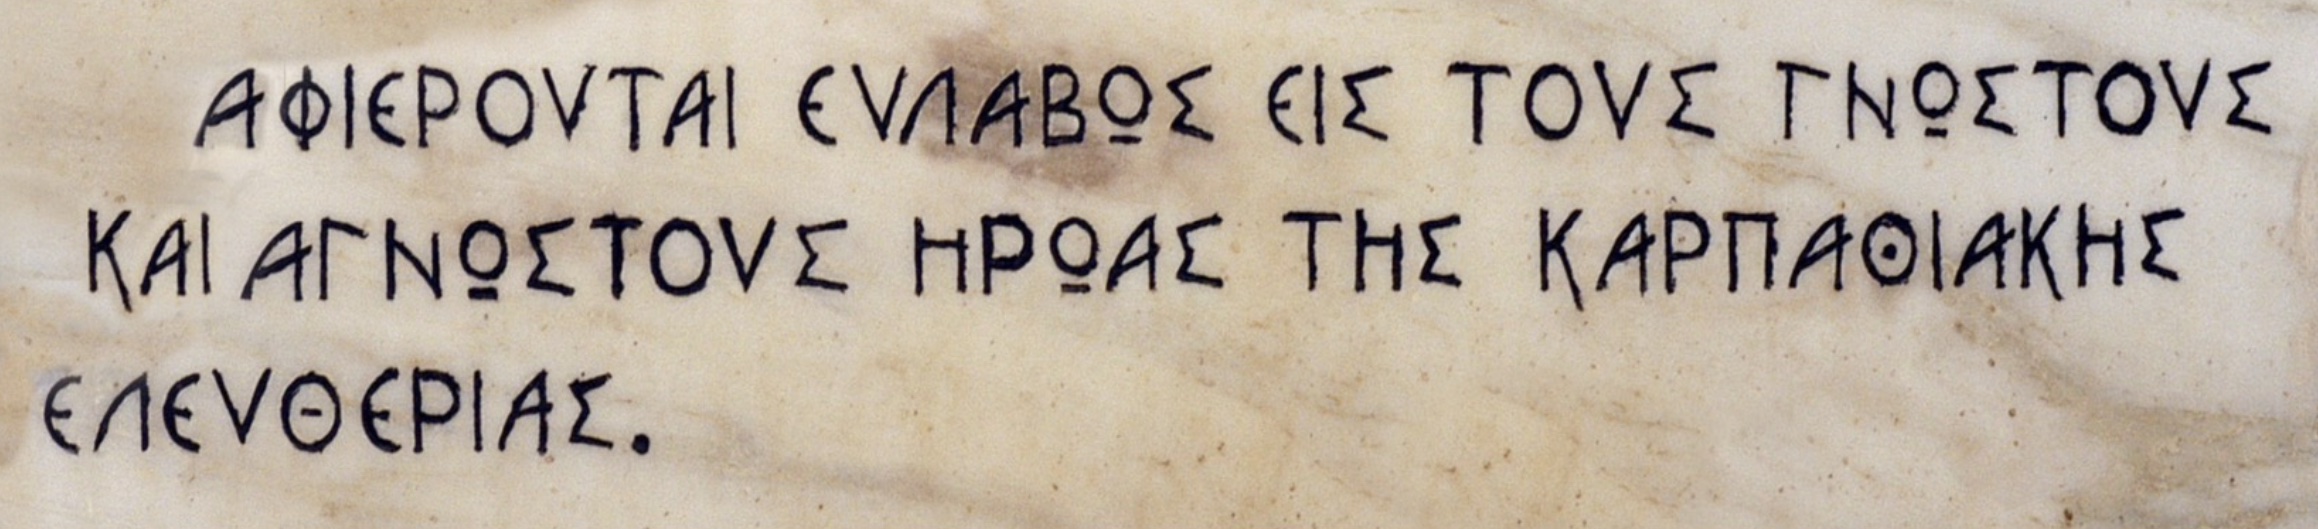 ΑΦΙΕΡΟΥΤΑΙ ΕΥΛΑΒΩΣ ΕΙΣ ΤΟΥΣ ΓΝΩΣΤΟΥΣ
ΚΑΙ ΑΓΝΩΣΤΟΥΣ ΗΡΩΑΣ ΤΗΣ ΚΑΡΠΑΘΙΑΚΗΣ
ΕΛΕΥΘΕΡΙΑΣ.